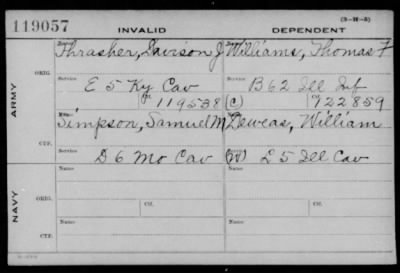 119057
(3-H-5)
INVALID DEPENDENT
ARMY
ORIG.
Name Thrasher, Dawson J Name Williams, Thomas F
Service E 5 Ky Cav Service B 62 Ill Inf
Ctf. 119538 (C) 722859
CTF.
Simpson, Samuel M Deweas, William
Service D 6 Mo Cav Service (W) L 5 Ill Cav
NAVY
ORIG.
Name Name
Ctf. Ctf.
CTF.
Name Name